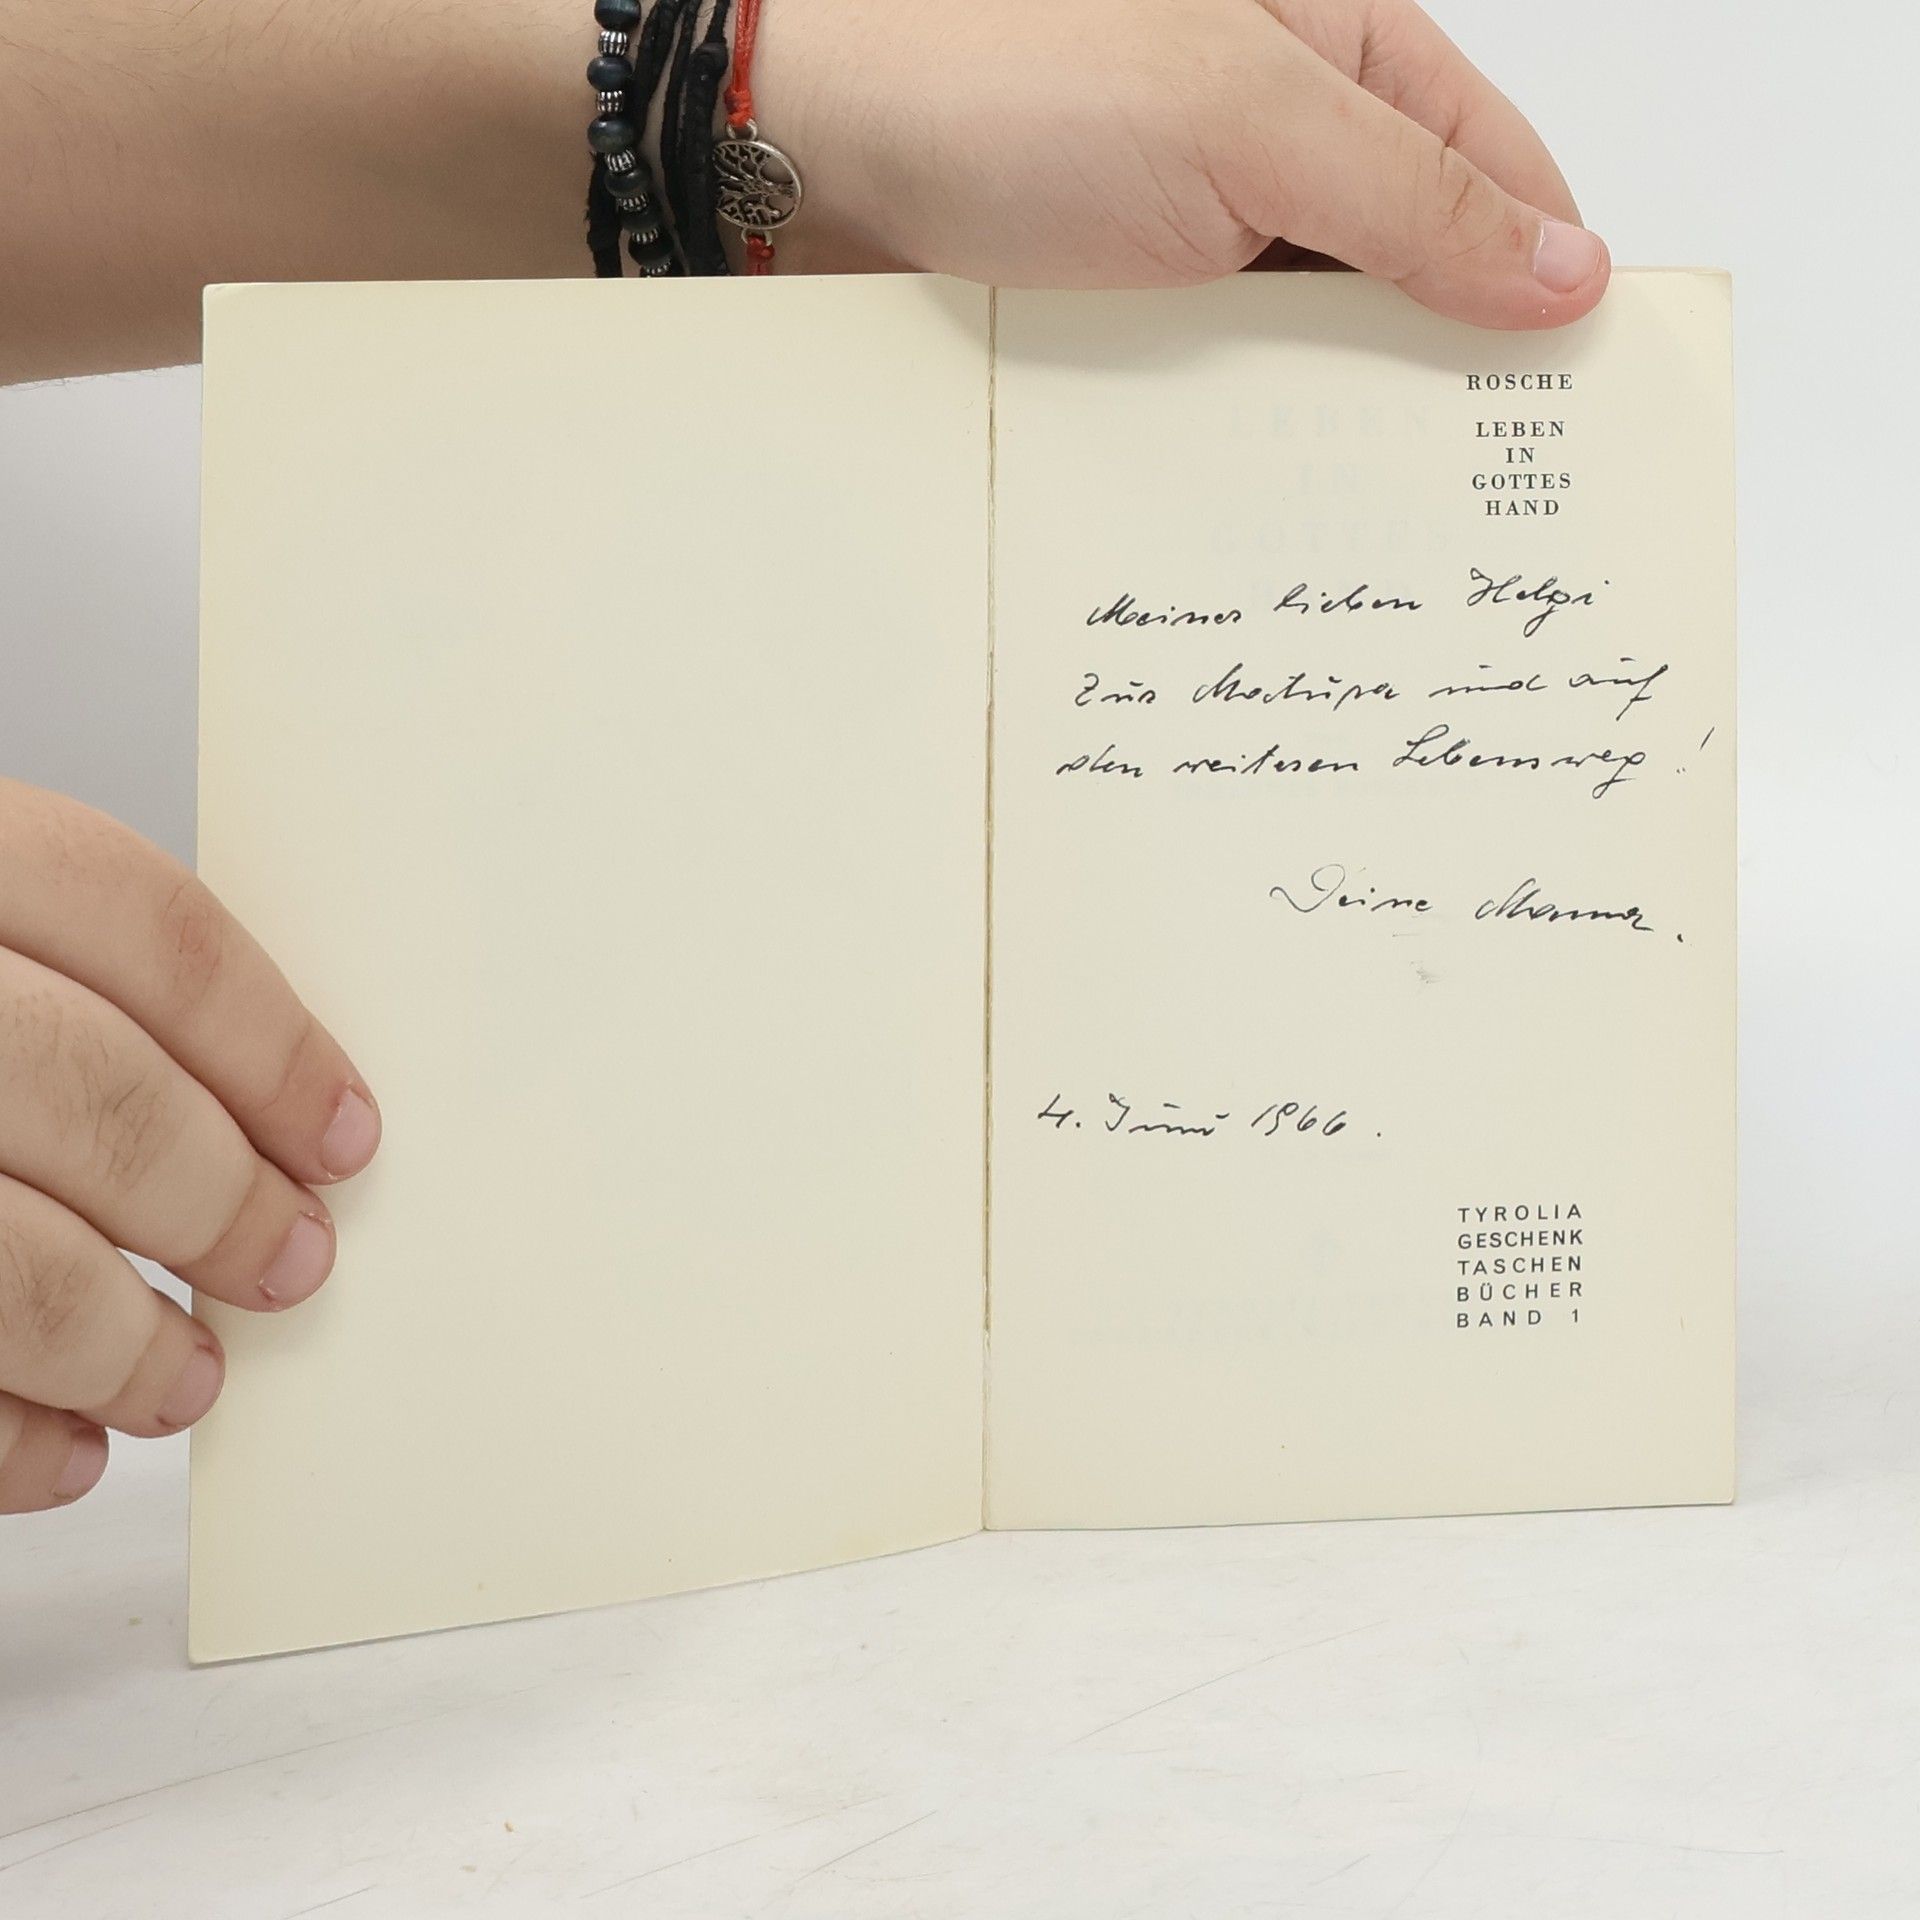 ROSCHE
LEBEN
IN
GOTTES
HAND
Meiner lieben Helgi
zur Matura und auf
den weiteren Lebensweg!
Deine Mama.
4. Juni 1966.
TYROLIA
GESCHENK
TASCHEN
BÜCHER
BAND 1